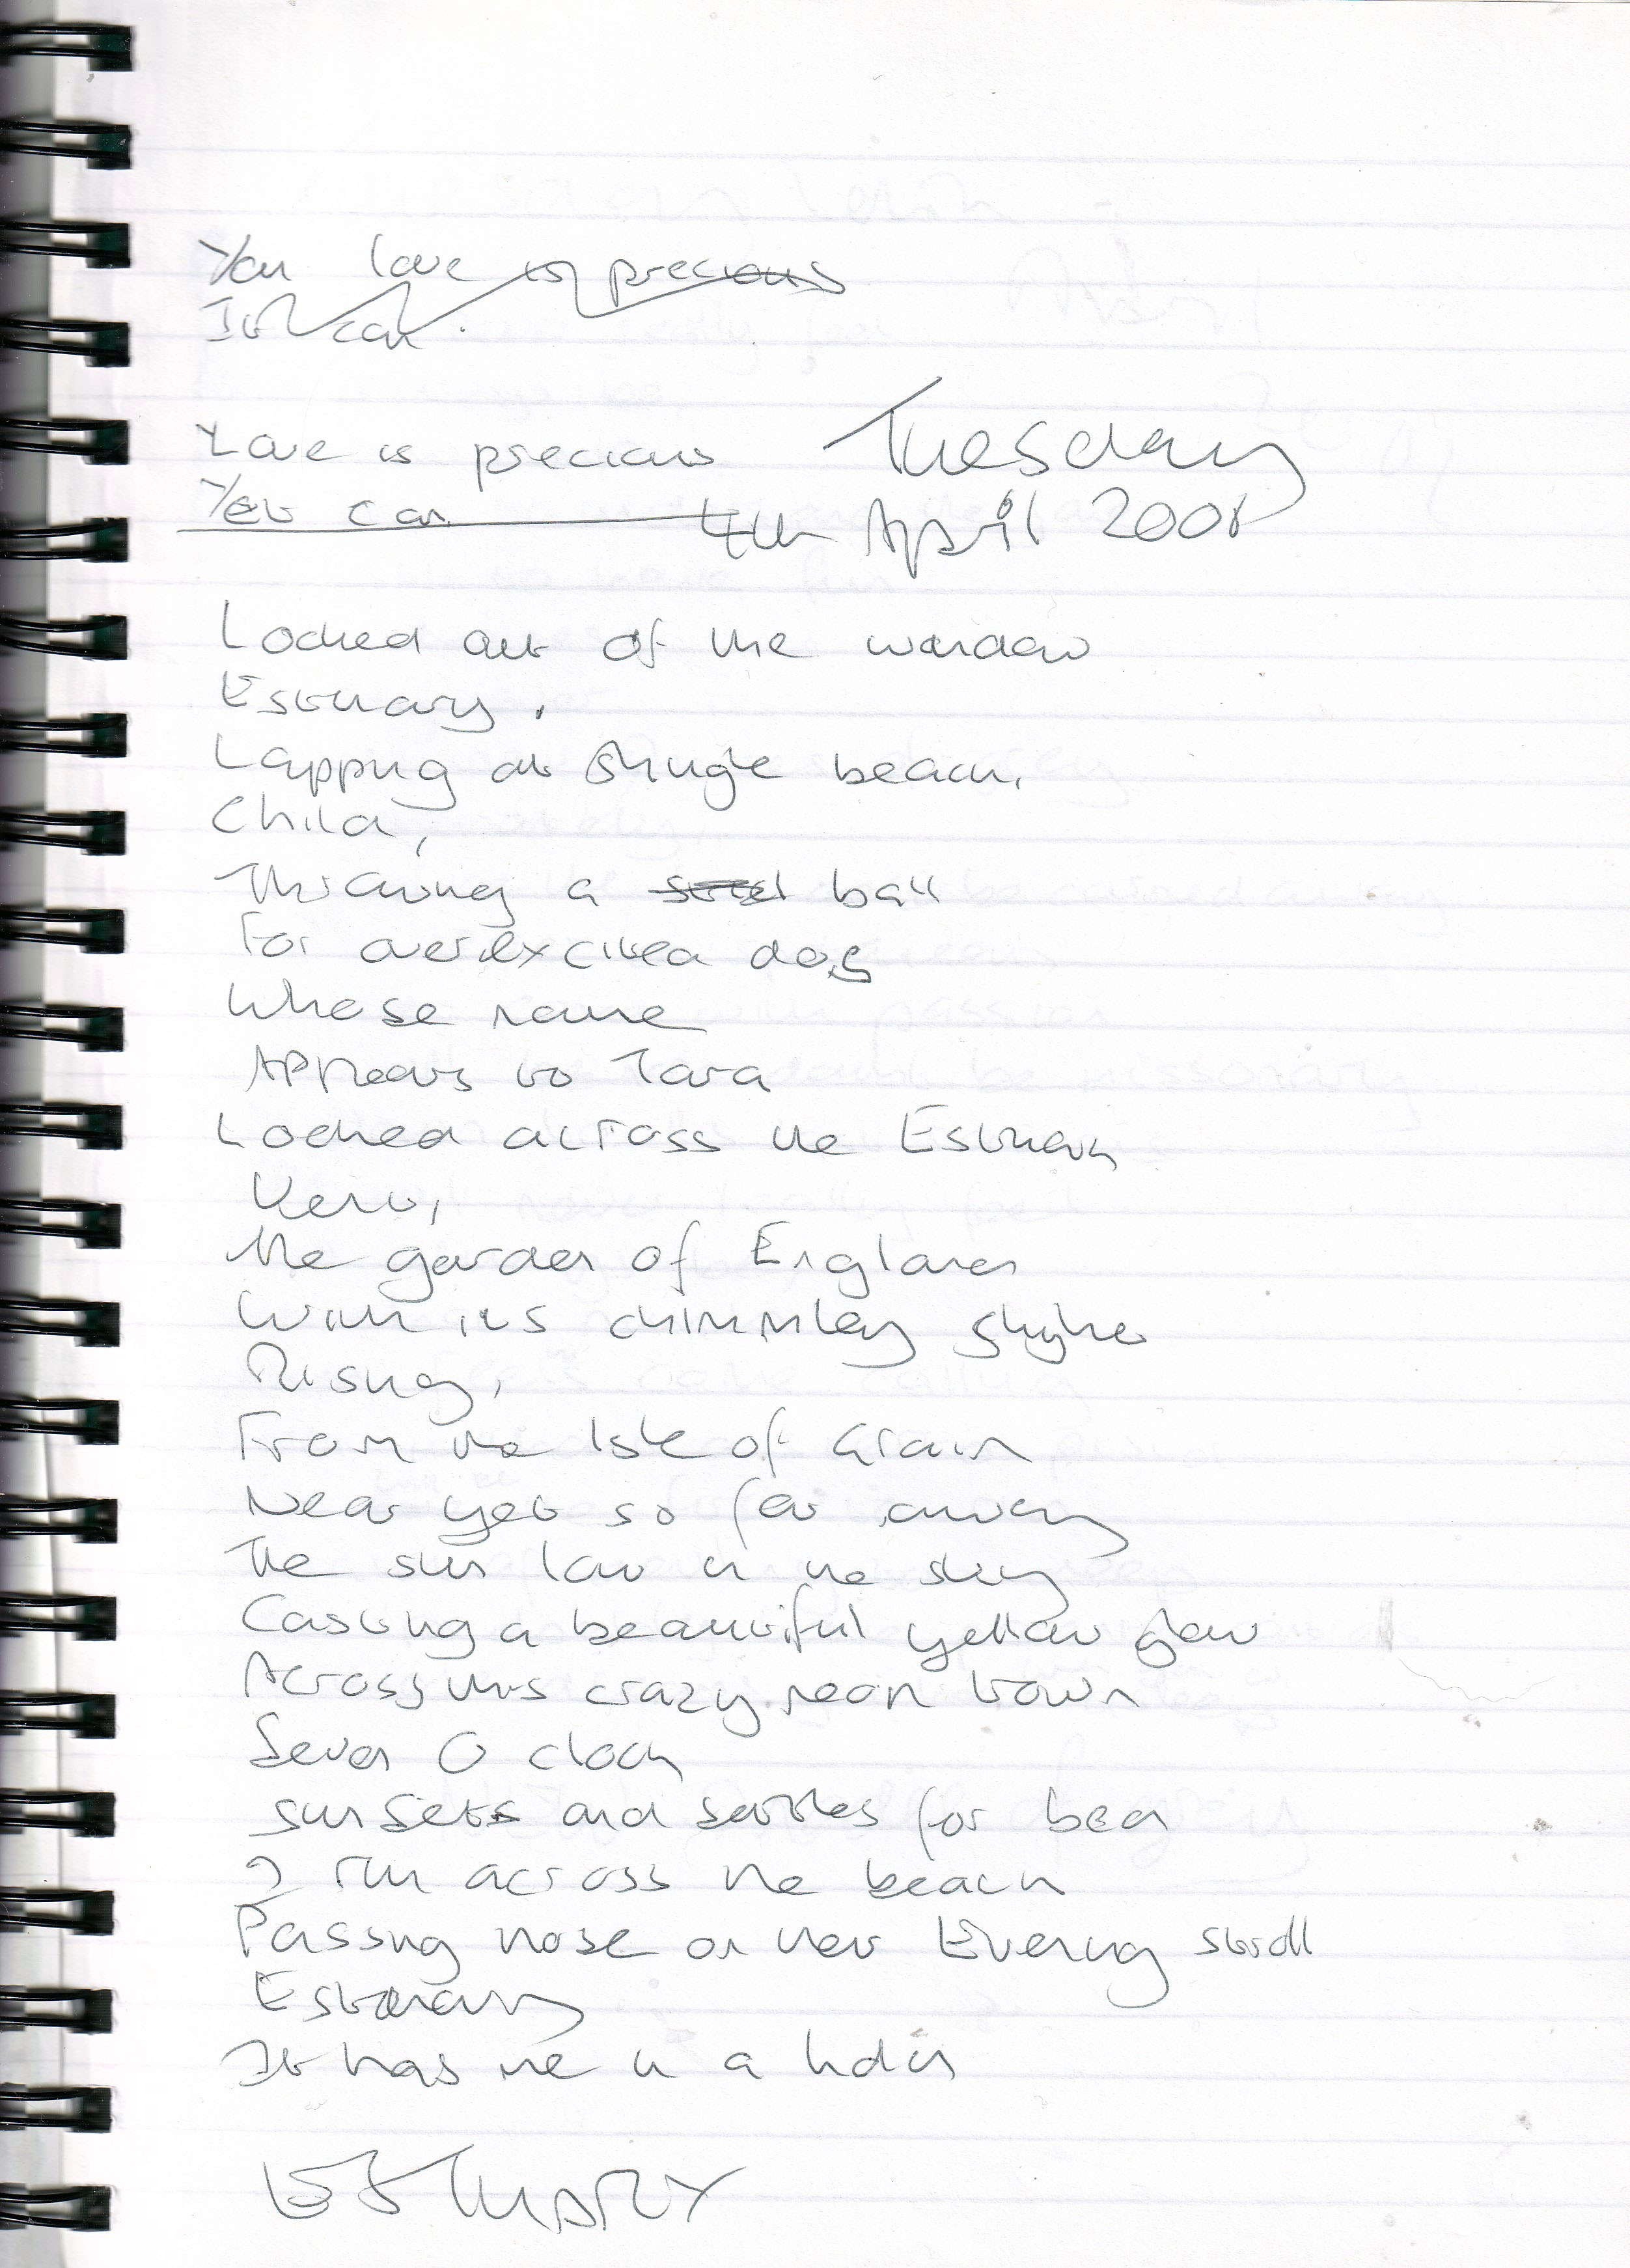 Your love is precious
It can.
Love is precious
Tuesday
Yet can
4th April 2008
Looked out of the window
Estuary.
Lapping at shingle beach,
Child,
Throwing a ball
For over excited dog
Whose name
Appears to Tara
Looked across the Estuary
Kent,
The garden of England
With its chimmley
Rising,
From the Isle of Grain
Near yet so far away
The sun low in the sky
Casting a beautiful yellow glow
Across this crazy neon town
Seven O clock
sun sets and settles for bed
I run across the beach
Passing those on their Evening stroll
Estuary
It has me in a
ESTUARY